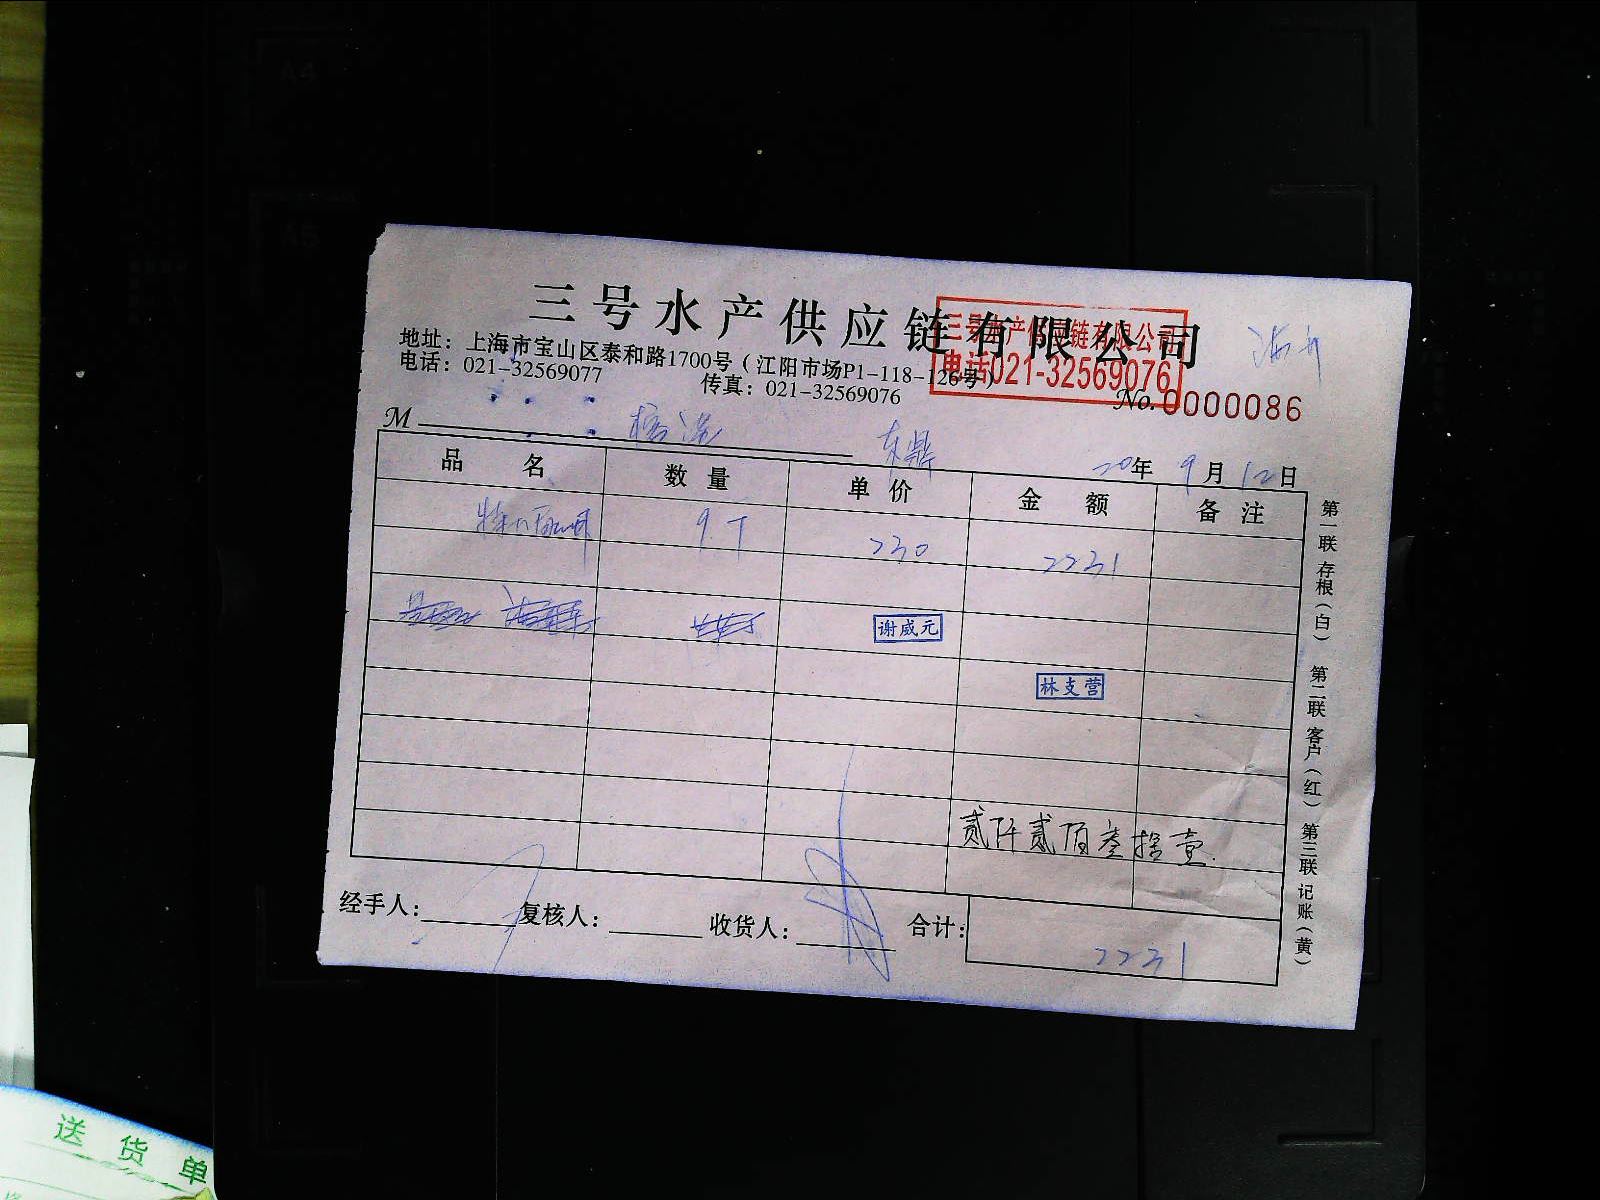 A4
A5
三号水产供应链有限公司
三号水产供应链有限公司
电话021-32569076
地址：上海市宝山区泰和路1700号（江阳市场P1-118-126号）
电话：021-32569077 传真：021-32569076
No. 0000086
M
东鼎 20年9月12日
品名 数量 单价 金额 备注
9 230 2231
谢威元
林支营
贰仟贰佰叁拾壹.
经手人： 复核人： 收货人： 合计： 2231
第一联 存根（白） 第二联 客户（红） 第三联 记账（黄）
送货单